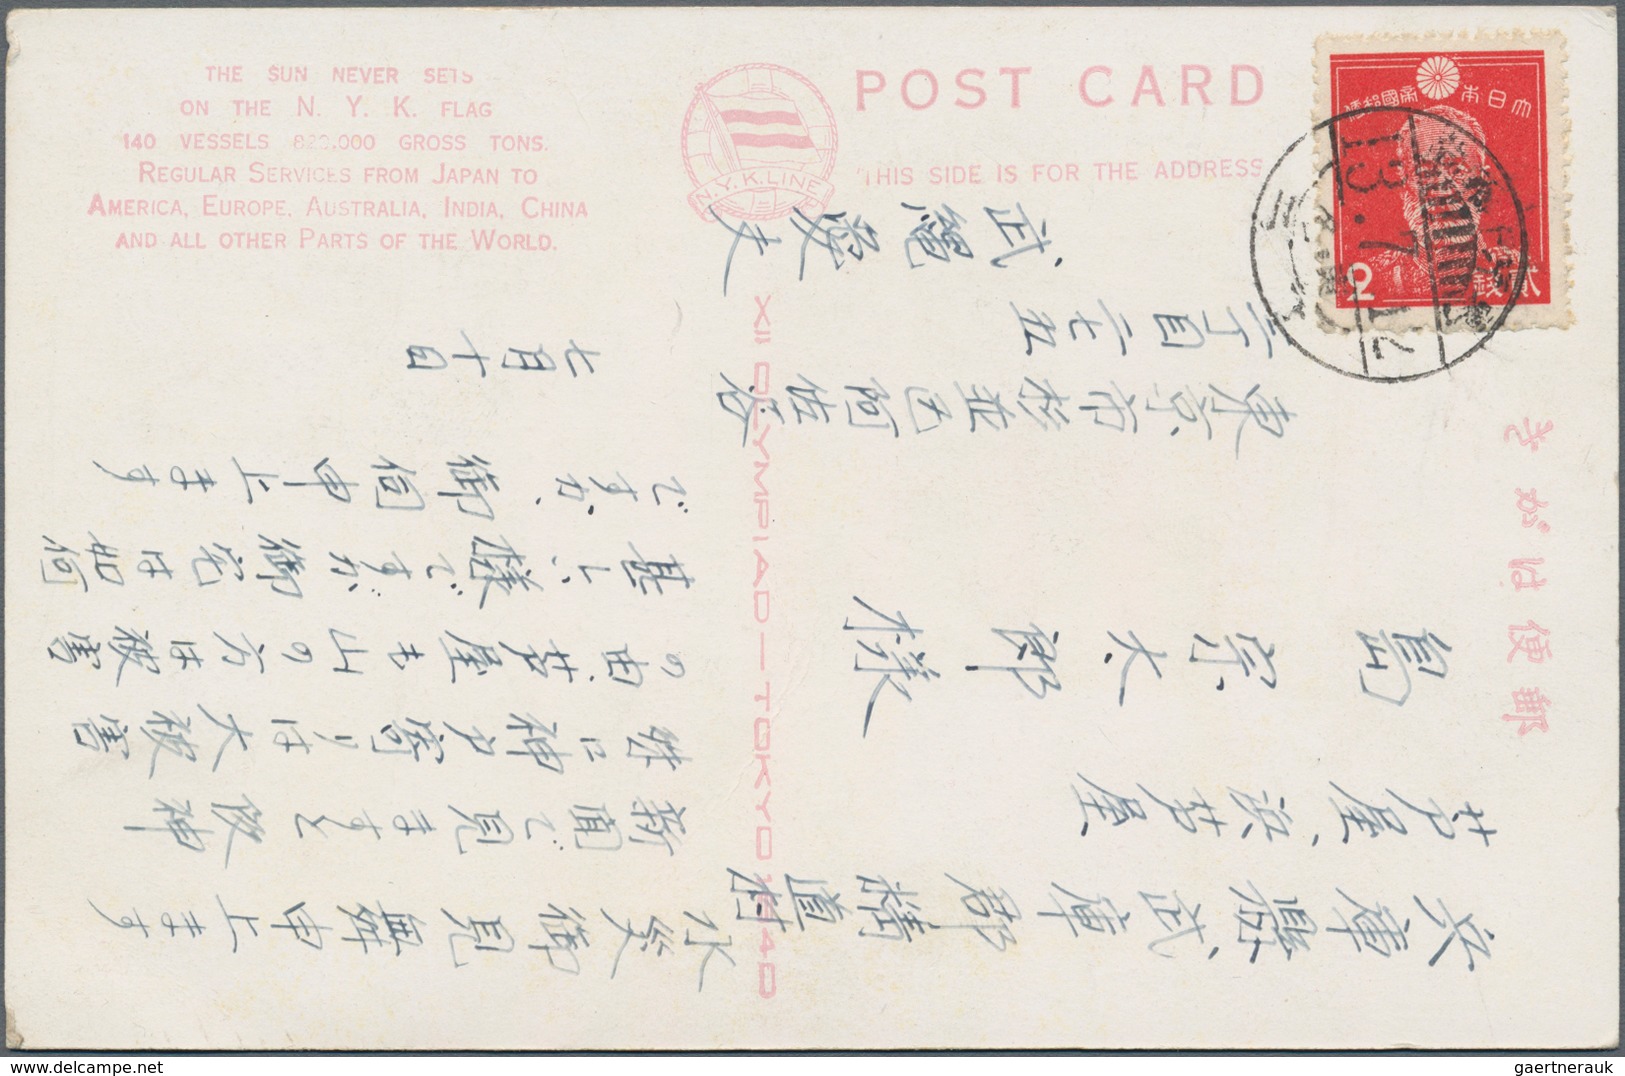 THE SUN NEVER SETS
ON THE N. Y. K. FLAG
140 VESSELS 820,000 GROSS TONS.
REGULAR SERVICES FROM JAPAN TO
AMERICA, EUROPE, AUSTRALIA, INDIA, CHINA
AND ALL OTHER PARTS OF THE WORLD.
N.Y.K.LINE
POST CARD
THIS SIDE IS FOR THE ADDRESS
XII OLYMPIAD—TOKYO 1940
大日本帝國郵便
貳錢
2
13.7.12
きがは便郵
兵庫縣武庫郡精道村
芦屋、浜芦屋
宗太郎様
東京市杉並区阿佐谷
二丁目六七五
武
水災御見舞申上ます
新聞で見ますと阪神
殊に神戸寄りは大被害
の由、芦屋も山の方は被害
甚しい様ですが御宅は如何
ですか、御伺申上ます
七月十日
gaertnerauk